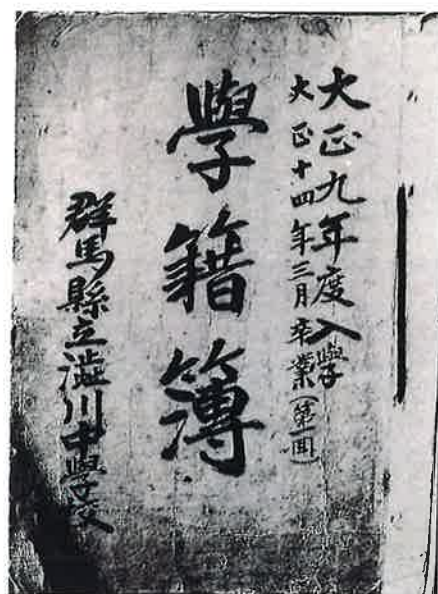 大正九年度入學
大正十四年三月卒業(第一回)
學籍簿
群馬縣立澁川中學校